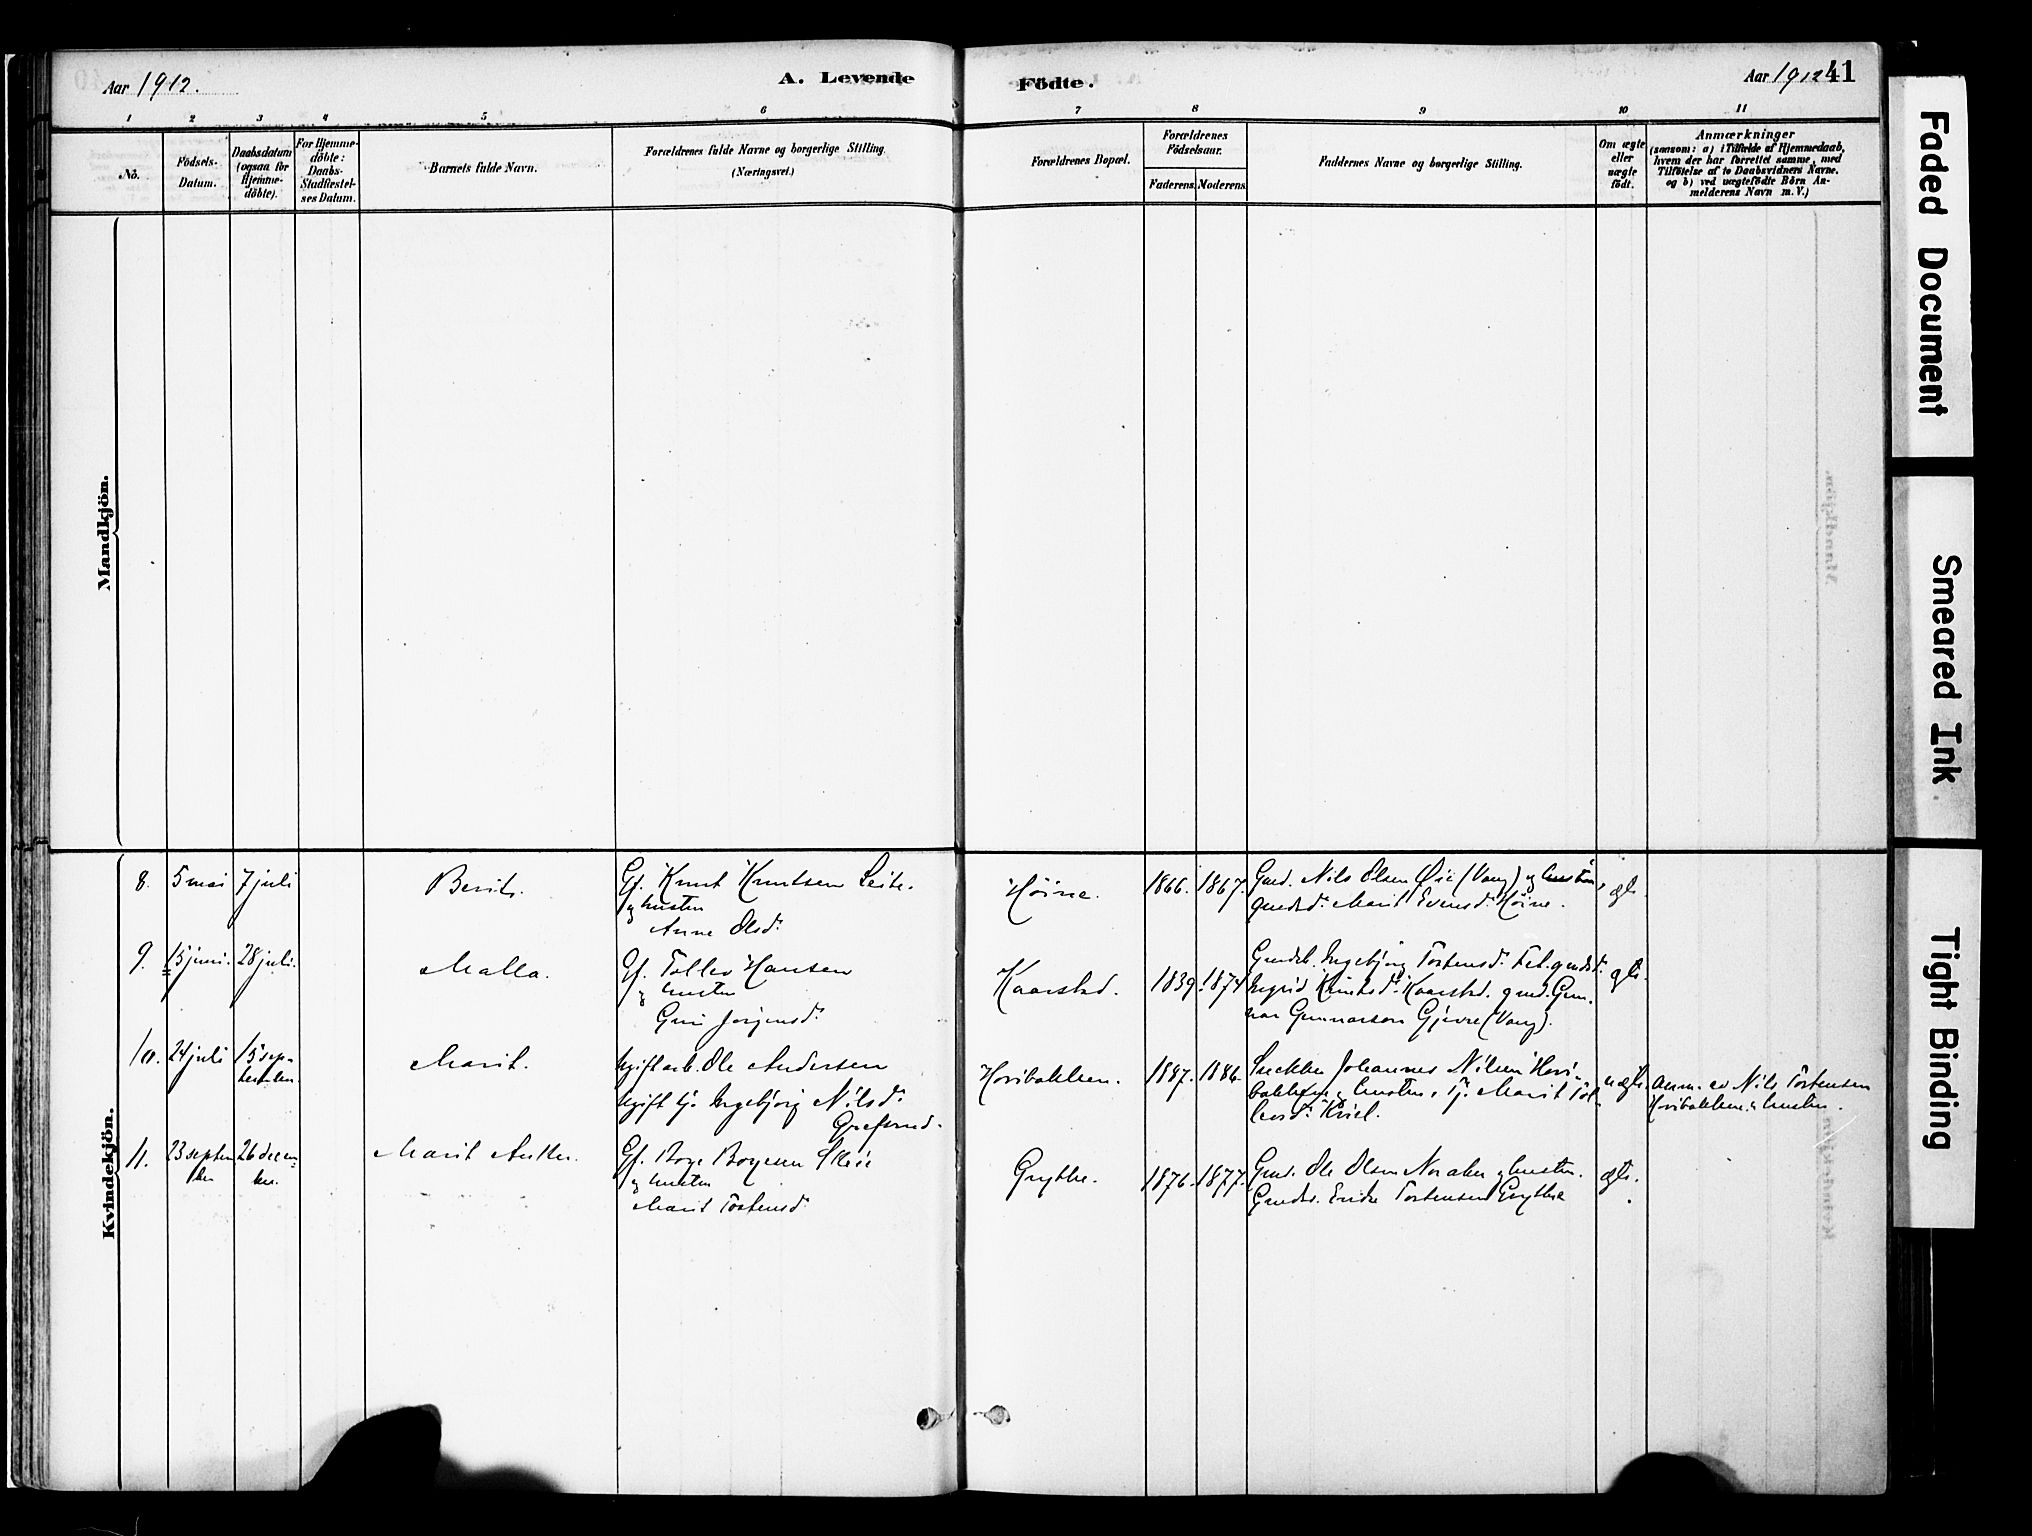 Aar 1912.
A. Levende
Födte.
Aar 1912
41
1 2 3 4 5 6 7 8 9 10 11
No.
Födsels-
Datum.
Daabsdatum
(ogsaa for
Hjemme-
döbte).
For Hjemme-
döbte:
Daabs-
Stadfæstel-
ses Datum.
Barnets fulde Navn.
Forældrenes fulde Navne og borgerlige Stilling.
(Næringsvei.)
Forældrenes Bopæl.
Forældrenes
Födselsaar.
Faderens. Moderens.
Faddernes Navne og borgerlige Stilling.
Om ægte
eller
uægte
födt.
Anmærkninger
(saasom: a) i Tilfælde af Hjemmedaab,
hvem der har forrettet samme, med
Tilföielse af to Daabsvidners Navne,
og b) ved uægtefödte Börn An-
melderens Navn m. V.)
Mandkjön.
Kvindekjön.
8. 5 mai 7 juli
Berit.
Gf. Knut Knutsen Leite.
og hustru
Anne Olsd.
Höine.
1866. 1867.
Gmd. Nils Olsen Öie (Vang) og hustru,
gmdd. Marit Evensd. Höine.
ægte.
9. 15 juni. 28 juli.
Malla.
Gf. Tollev Hansen
og hustru
Guri Jörgensd.
Kaarstad.
1839. 1874
Ingebjörg Tostensd.
Ingrid Knutsd. Kaarstad. gmd. Gun-
nar Gunnarson Gjevre (Vang).
ægte.
10. 24 juli 15 sep-
tember.
Marit.
Ugift arb. Ole Andersen
Ugift tj. Ingebjörg Nilsd.
Grefsrud.
Hovibakken.
1887. 1886.
Snekker Johannes Nilsen Hovi-
bakken og hustru, Tj. Marit Tol-
levsd. Kviel.
uægte.
Anm. av Nils Tostensen
Hovibakken og hustru.
11. 23 septem
ber 26 decem
ber.
Marit
Gf. Boye Boyesen
og hustru
Marit Tostensd.
Grythe.
1876. 1877.
Gmd. Ole Olsen Noraker og hustru.
Endre Tostensen Grythe
ægte.
Faded Document
Smeared Ink
Tight Binding